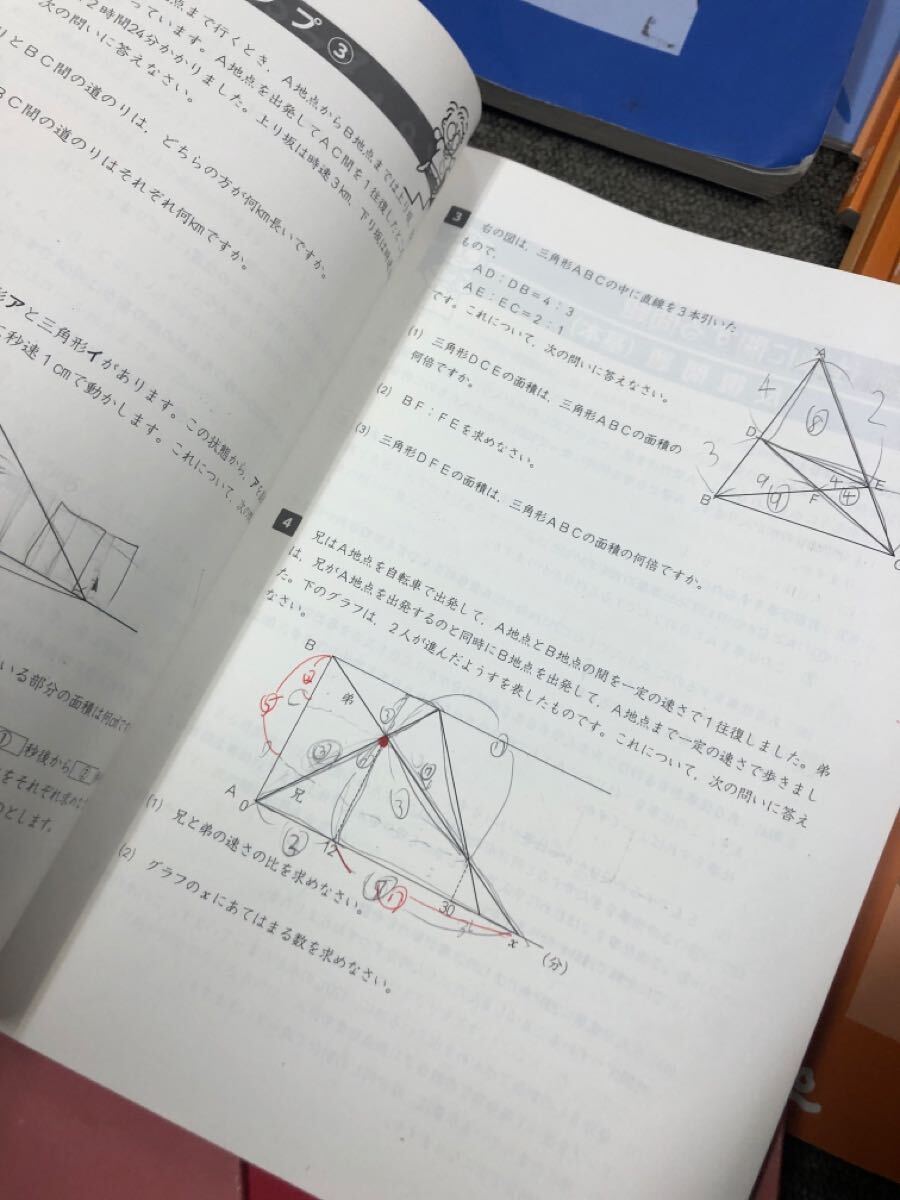 プ ③
地点まで行くとき，A地点からB地点までは上り坂
っています。A地点を出発してAC間を1往復したところ
2時間24分かかりました。上り坂は時速3km，下り坂は時速
次の問いに答えなさい。
とBC間の道のりは，どちらの方が何km長いですか。
BC間の道のりはそれぞれ何kmですか。
形アと三角形イがあります。この状態から，アを
秒速1cmで動かします。これについて，次の問
いる部分の面積は何cm²です
① 秒後から ②
をそれぞれ求め
のとします。
3
右の図は，三角形ABCの中に直線を3本引いた
もので，
AD：DB＝4：3
AE：EC＝2：1
です。これについて，次の問いに答えなさい。
(1) 三角形DCEの面積は，三角形ABCの面積の
何倍ですか。
(2) BF：FEを求めなさい。
(3) 三角形DFEの面積は，三角形ABCの面積の何倍ですか。
A
4
2
⑧
D
3
E
9
⑨
4
④
B
F
C
4
兄はA地点を自転車で出発して，A地点とB地点の間を一定の速さで1往復しました。弟
は，兄がA地点を出発するのと同時にB地点を出発して，A地点まで一定の速さで歩きまし
た。下のグラフは，2人が進んだようすを表したものです。これについて，次の問いに答え
なさい。
B
弟
③
①
⑤
③
A
0
兄
②
12
⑰
30
x
(分)
(1) 兄と弟の速さの比を求めなさい。
(2) グラフのxにあてはまる数を求めなさい。